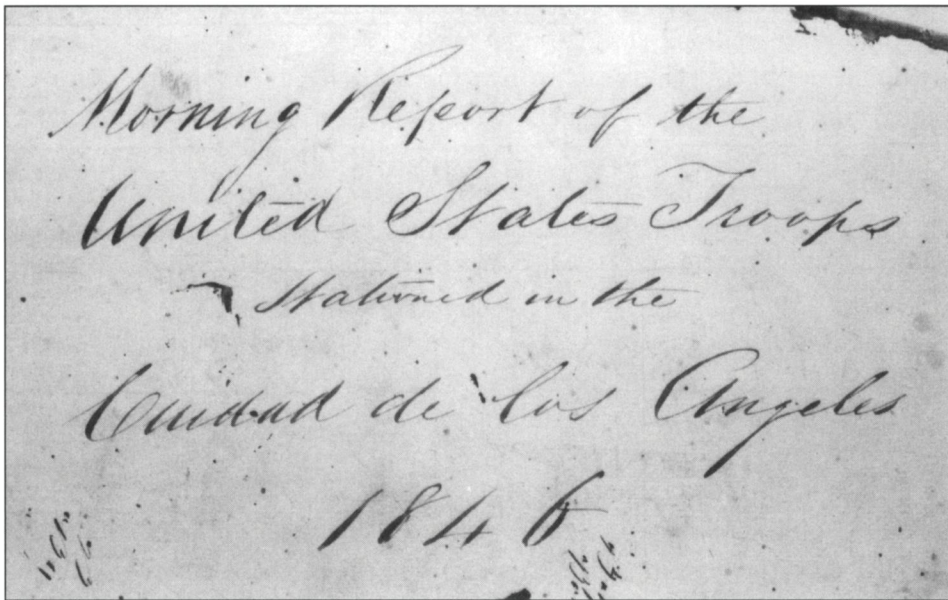 Morning Report of the
United States Troops
Stationed in the
Cuidad de los Angeles
1846